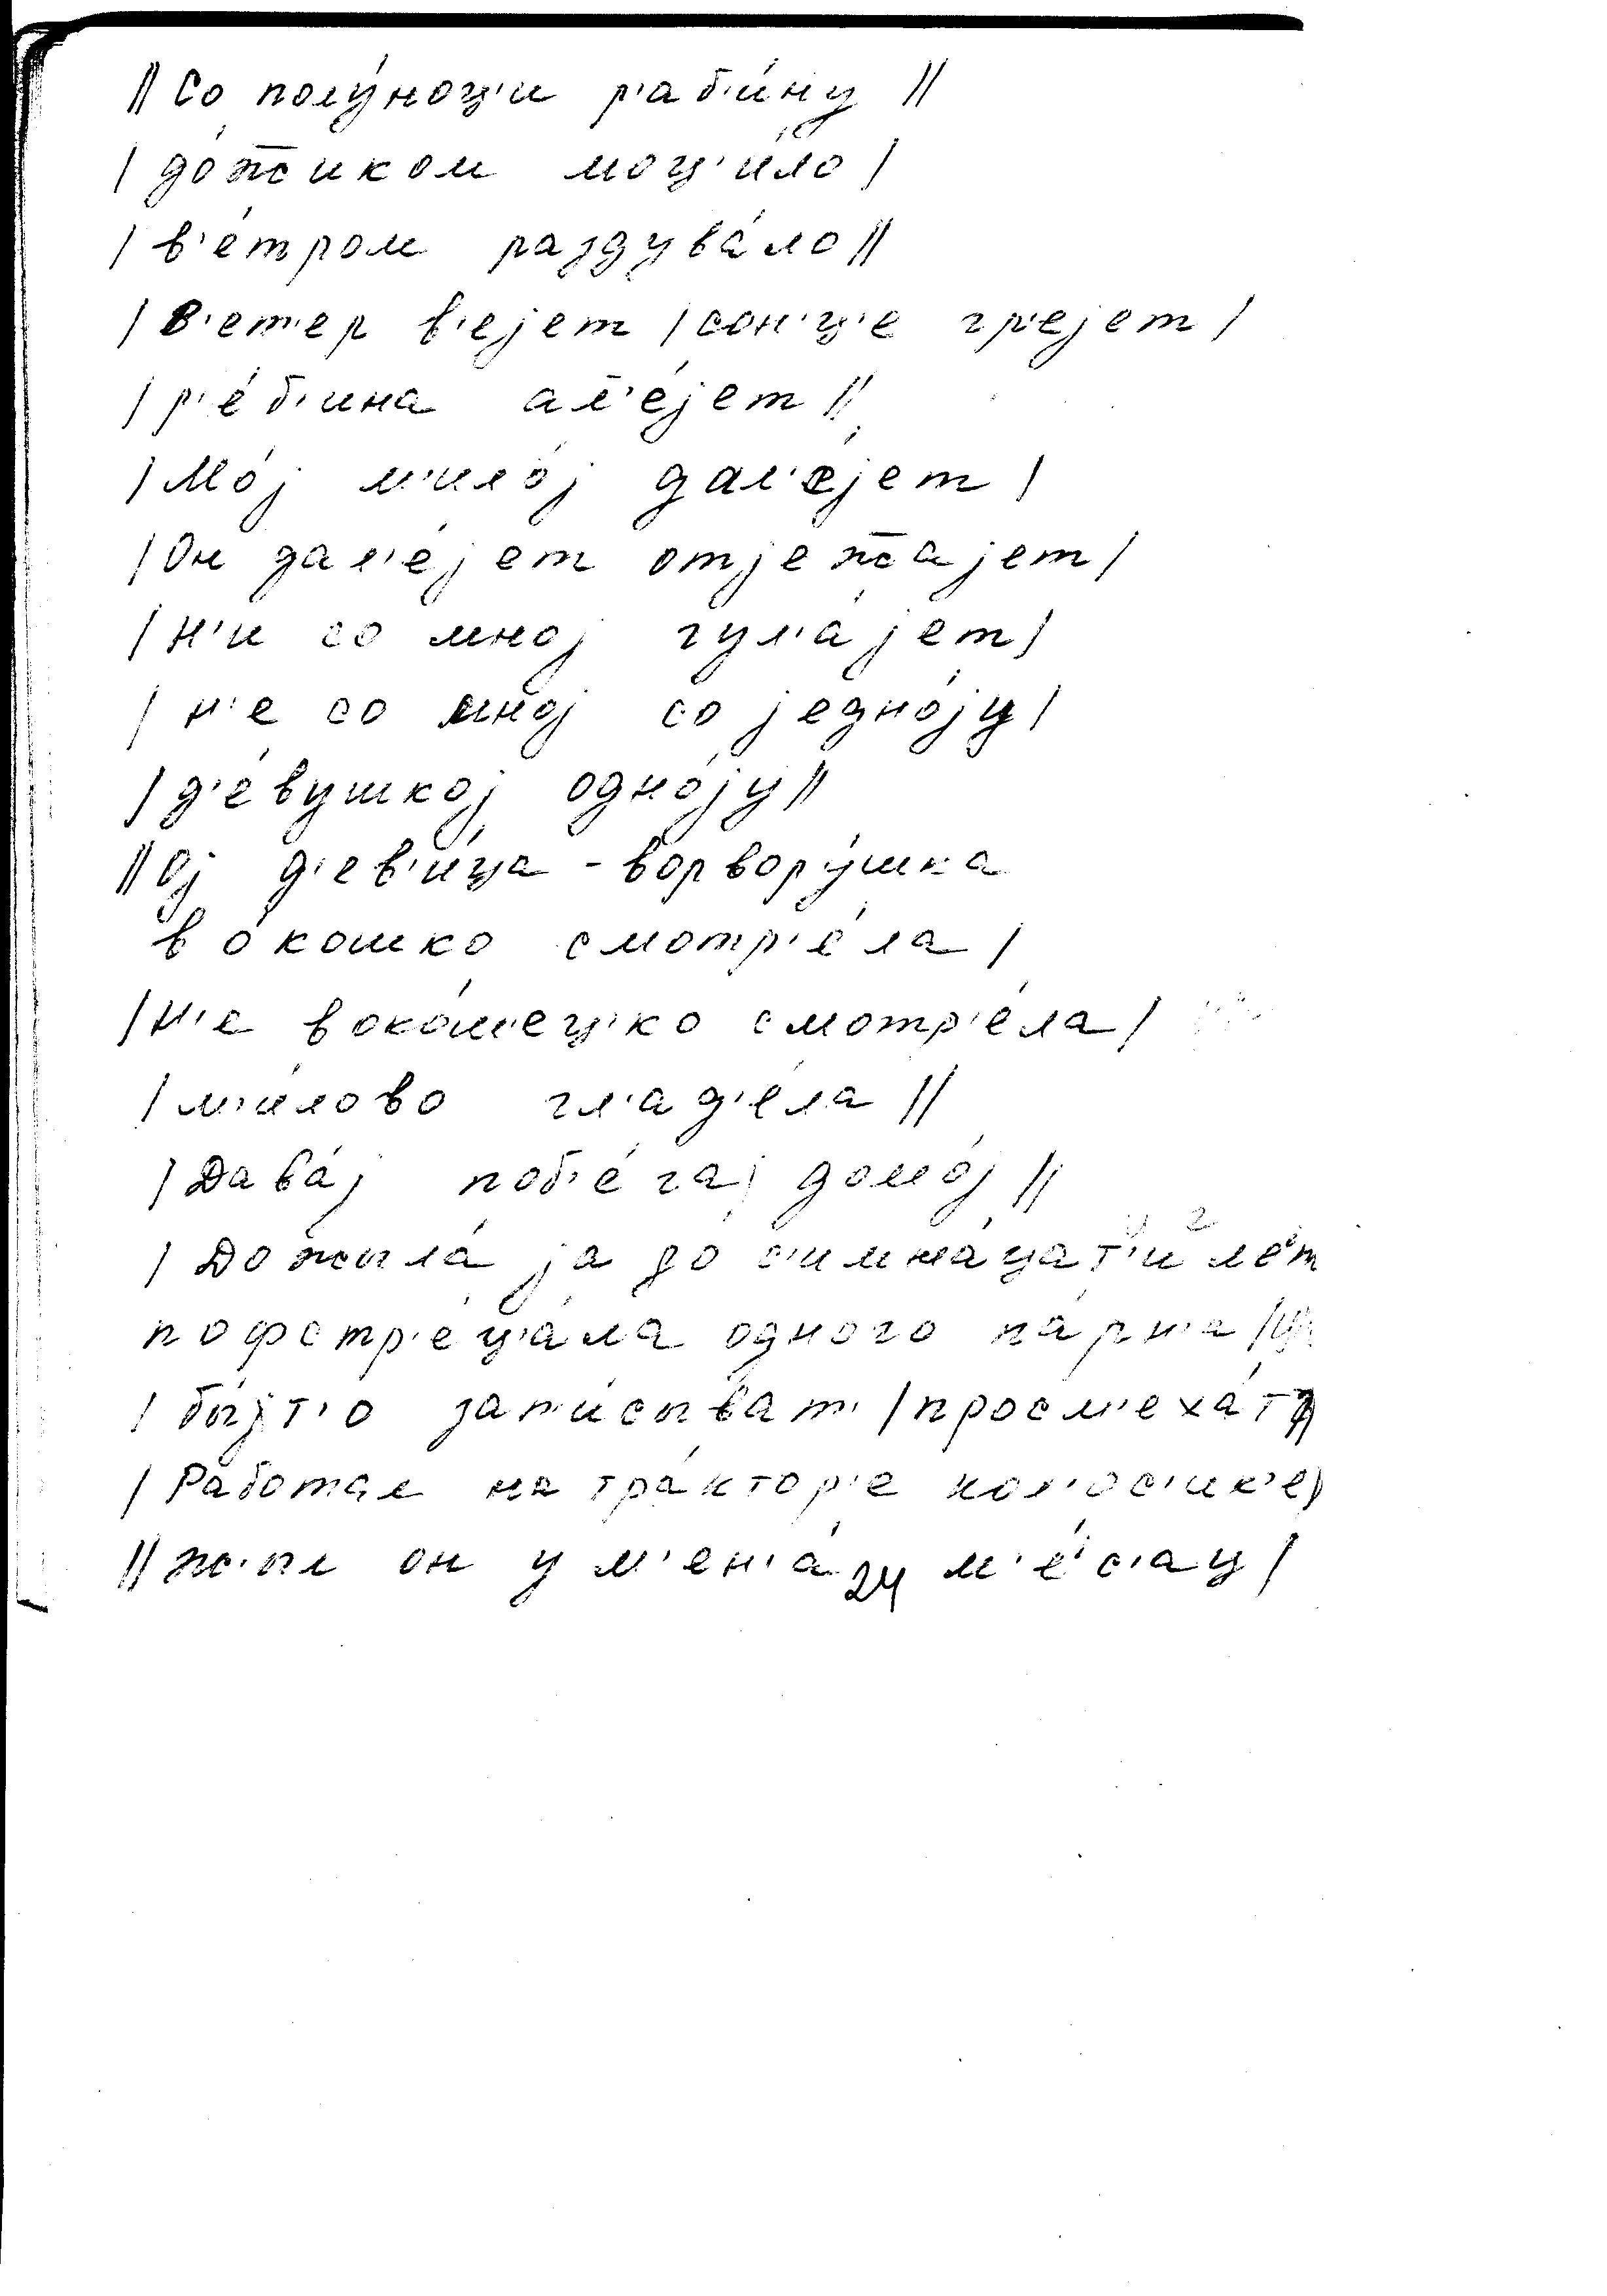 || Со полу́ноц'и р'аб'и́ну ||
| до́ж̅иком моц'и́ло |
| в'е́тром раздува́ло ||
| В'ет'ер в'ејет | сон'ц'е гр'ејет |
| р'е́б'ина ал'е́јет ||
| Мо́ј м'ило́ј дал'е́јет |
| Он дал'е́јет отјеж̅ајет |
| н'и со мној гул'а́јет |
| н'е со мној со једно́ју |
| д'е́вушкој одно́ју ||
|| Ој д'ев'и́ца - ворвору́шка
в о́кошко смотр'е́ла |
| Н'е в око́шец'ко смотр'е́ла |
| м'и́лово гл'ад'е́ла ||
| Дава́ј поб'е́гај домо́ј ||
| Дожыла́ ја до с'имна́цат'и ле́т
пофстр'ец'а́ла одного па́рн'а |
| бы́јт'о зап'и́сыват' | просм'еха́т' ||
| Работал на тра́ктор'е кол'ос'ик'е |
|| ж'ыл он у м'ен'а́ 24 м'е́с'ац |